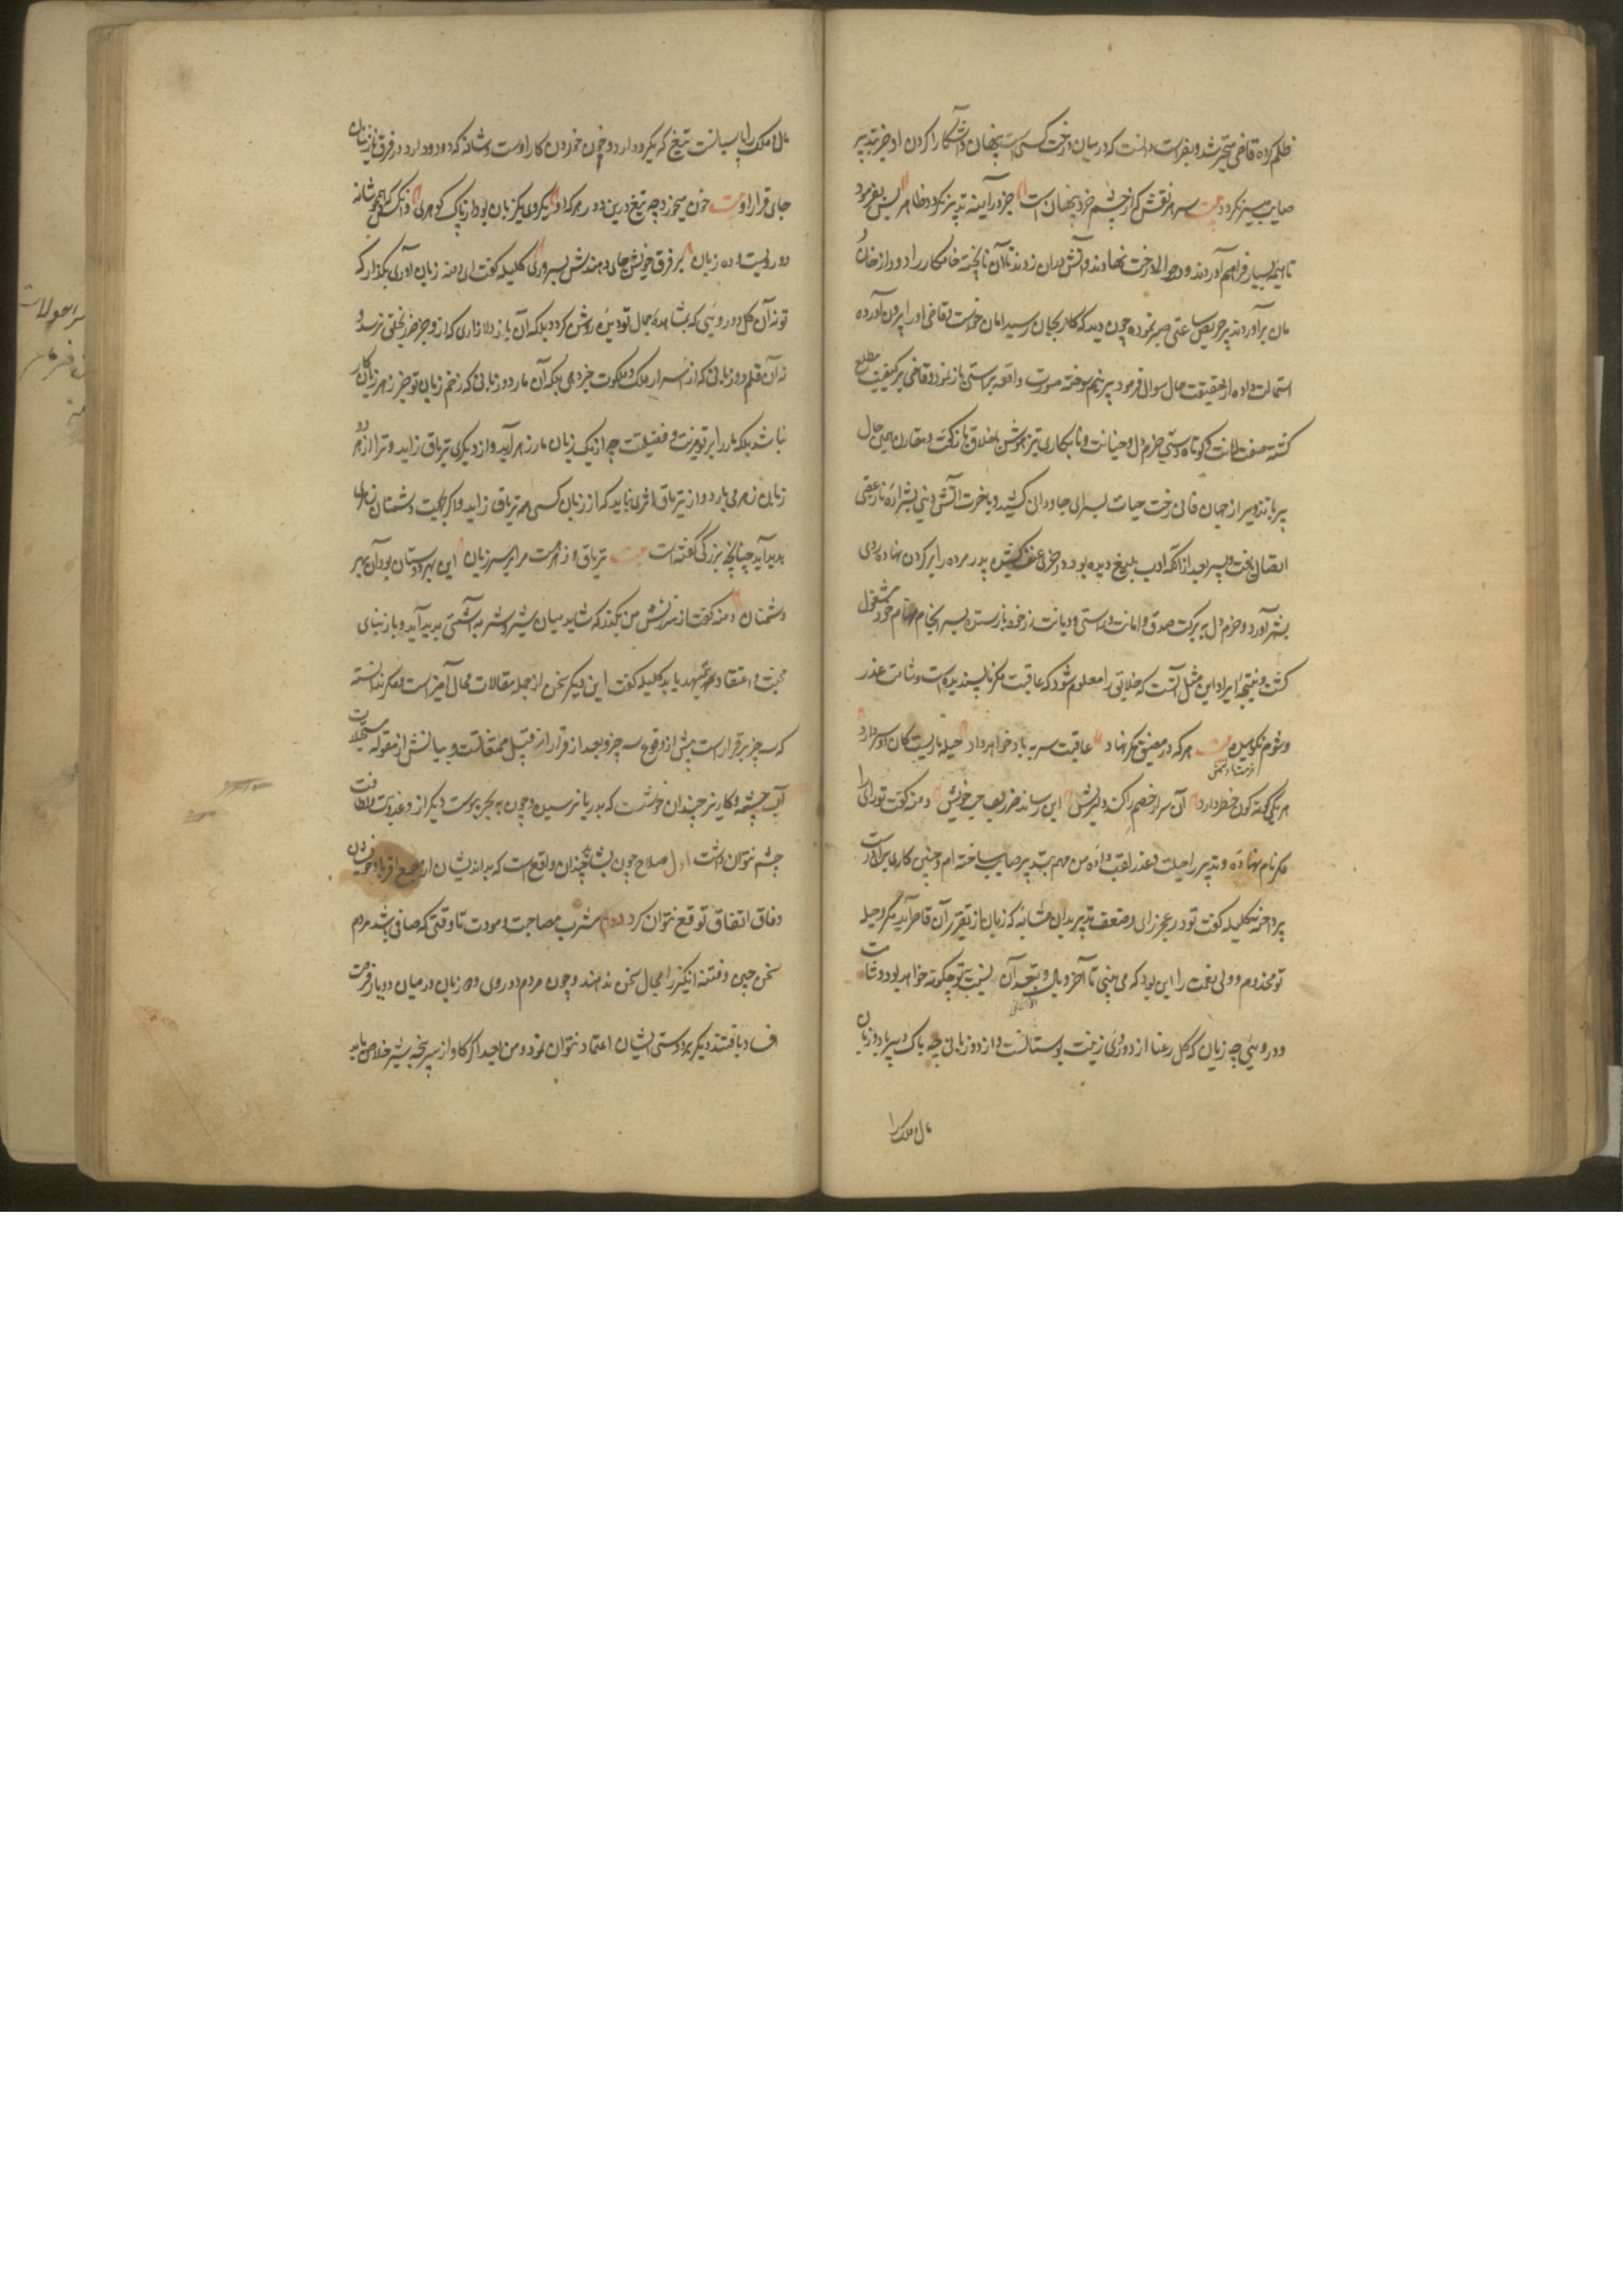 ظلم کرده قاضی متحیر شد و بفراست دانست که در میان درخت کسی است پنهان و آشکارا کردن او جز بتدبیر
صایب میسر نگردد بیت سر هر نقش که از چشم خرد پنهان است جز در آیینه تدبیر نگردد ظاهر پس بفرمود
تا هیمه بسیار فراهم آوردند و در حوالی درخت نهادند و آتش در آن زدند تا آن ناپخته خامکار را دود از خان و
مان برآوردند پیر حریص ساعتی صبر نموده چون دید که کار بجان رسید امان خواست قاضی او را بیرون آورده
استمالت داده از حقیقت حال سوال فرمود پیر نیم سوخته صورت واقعه براستی باز نمود و قاضی بر کیفیت مطلع
گشته صفت امانت و کوتاه دستی خرم دل و خیانت و نابکاری تیزهوش با خلایق باز گفت و مقارن همین حال
پیر با تزویر از جهان فانی رخت حیات بسرای جاودانی کشید و با حرارت آتش دنیی بشراره نار عقبی
اتصال یافت و پسر بعد از آنکه ادب بلیغ دیده بود و زجری عنیف کشیده پدر مرده را بر گردن نهاده روی
بشهر آورد و خرم دل به برکت صدق و امانت و راستی و دیانت زر خود باز ستده بسرانجام مهام خود مشغول
گشت و نتیجه ایراد این مثل آنست که خلایق را معلوم شود که عاقبت مکر ناپسندیده است و شامت غدر
و شوم نکوهیده بیت هر که در مضیق مکر نهاد عاقبت سر به باد خواهد داد حیله ماریست کان دو سر دارد
هر یکی گونه گون خطر دارد آن سر ار خصم را کند دلریش این رساند ضرر بصاحب خویش دمنه گفت تو رای را
مکر نام نهاده و تدبیر را حیلت و غدر لقب داده من مهم بتدبیر صایب ساخته ام و چنین کاری برای راست
پرداخته کلیله گفت تو در عجز رای و ضعف تدبیر بدان مثابه که زبان از تقریر آن قاصر آید مکر و حیله
تو مخدوم و ولی نعمت را این بود که می بینی تا آخر وبال و تبعه آن نسبت بتو چگونه خواهد بود و شامت
دو رویئی چه زیان که گل رعنا از دو روی زینت بوستانست و از دو زبانی چه باک دبیر با دو زبان
مال و ملک را
مال و ملک را پاسبانست تیغ که یکرو دارد و خون خوردن کار اوست و شانه که دو رو دارد در فرق نازنینان
جای قرار او بیت خون میخورد چه تیغ درین دور هر که او یکروی یکزبان بود از پاک گوهری و انکس که همچو شانه
دو رویست و ده زبان بر فرق خویش جای دهندش بسروری کلیله گفت ای دمنه زبان آوری بگذار که
تو نه آن گل دو رویئی که بمشاهده جمال تو دیده روشن گردد بلکه آن باز دلازاری که از تو جز ضرر بخلق نرسد و
نه آن قلم دو زبانی که از اسرار ملک و ملکوت خبر دهی بلکه آن مار دو زبانی که زخم زبان تو جز زهر زیان کار
نباشد بلکه مار را بر تو مزیت و فضیلتست چه از یک زبان مار زهر آید و از دیگری تریاق زاید و ترا از هر دو
زبان زهر می بارد و از تریاق اثری نباید که از زبان کسی همه تریاق زاید و اگر بجهت دشمنان زهری
پدید آید چنانچه بزرگی گفته است بیت تریاق و زهر هست مرا بر سر زبان این بهر دوستان بود آن بهر
دشمنان دمنه گفت از سرزنش من بگذر که شاید میان شیر و شتربه آشتی پدید آید و باز بنای
محبت و اعتقاد تمهید یابد کلیله گفت این دیگر سخن از جمله مقالات محال آمیز است مگر ندانسته
که سه چیز برقرار است پیش از وقوع سه چیز و بعد از قرار از قبیل ممتنعاتست و ثباتش از مقوله مستحیلات
آب چشمه و کاریز چندان خوشست که بدریا نرسیده و چون به بحر پیوست دیگر از و عذوبت و لطافت
چشم نتوان داشت اول صلاح چون بشایع چندان واقع است که بداندیشان از مجمع اقربا و خویشان
وفاق اتفاق توقع نتوان کرد دوم مشرب مصاحبت و مودت تا وقتی که صافی باشد مردم
سخن چین و فتنه انگیز را مجال سخن ندهند و چون مردم دو روی و ده زبان در میان دو یار فرصت
فساد یافتند دیگر بر دوستی ایشان اعتماد نتوان نمود و من بعد اگر گاو از سر پنجه شیر خلاص یابد